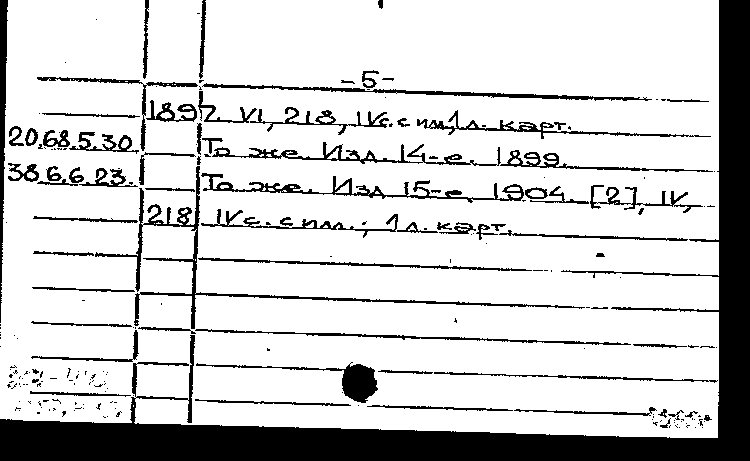 -5-
1897. VI, 218, IVс. с илл, 1 л. карт.
20.68.5.30 То же. Изд. 14-е. 1899.
38.6.6.23. То же. Изд 15-е. 1904. [2], IV,
218, IV с. с илл.; 1 л. карт.